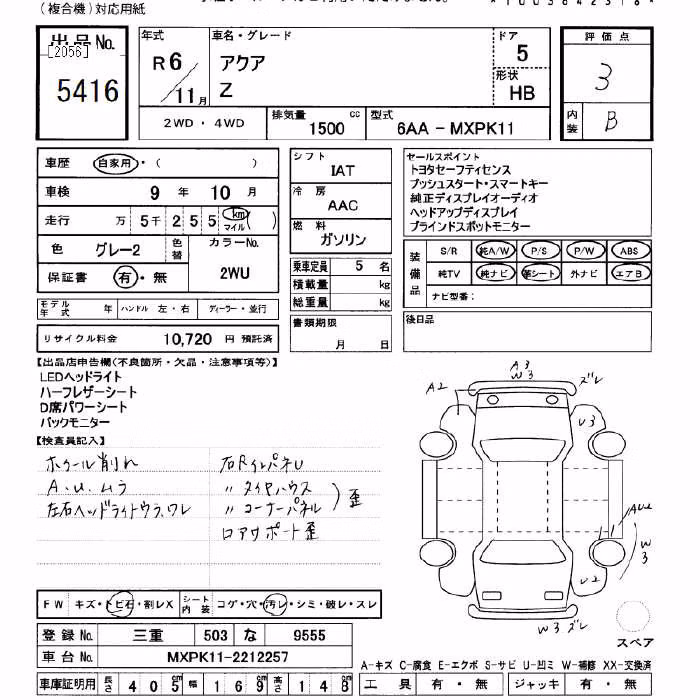 (複合機)対応用紙
出品No.
[2056]
5416
年式
R6/11月
車名・グレード
アクア
Z
ドア
5
形状
HB
評価点
3
内装
B
2WD・4WD
排気量
1500 cc
型式
6AA-MXPK11
車歴 自家用・( )
車検 9年 10月
走行 万 5千 2 5 5 km マイル ( )
色 グレー2 色替
カラーNo.
2WU
保証書 有・無
モデル年式 年 ハンドル 左・右 ディーラー・並行
リサイクル料金 10,720 円 預託済
シフト
IAT
冷房
AAC
燃料
ガソリン
乗車定員 5 名
積載量 kg
総重量 kg
書類期限
月 日
セールスポイント
トヨタセーフティセンス
プッシュスタート・スマートキー
純正ディスプレイオーディオ
ヘッドアップディスプレイ
ブラインドスポットモニター
装備品
S/R 純A/W P/S P/W ABS
純TV 純ナビ 革シート 外ナビ エアB
ナビ型番:
後日品
【出品店申告欄(不良箇所・欠品・注意事項等)】
LEDヘッドライト
ハーフレザーシート
D席パワーシート
バックモニター
【検査員記入】
ホイール削れ
A.U.ムラ
左右ヘッドライトウラ、ワレ
右RインパネU
〃 タイヤハウス
〃 コーナーパネル
歪
ロアサポート歪
A3
W3
ズレ
A2
U3
AU2
W3
U2
W3 ズレ
スペア
FW キズ・トビ石・割レX シート内装 コゲ・穴・汚レ・シミ・破レ・スレ
登録No. 三重 503 な 9555
車台No. MXPK11-2212257
車庫証明用 長さ 405 幅 169 高さ 148
A-キズ C-腐食 E-エクボ S-サビ U-凹ミ W-補修 XX-交換済
工具 有・無 ジャッキ 有・無